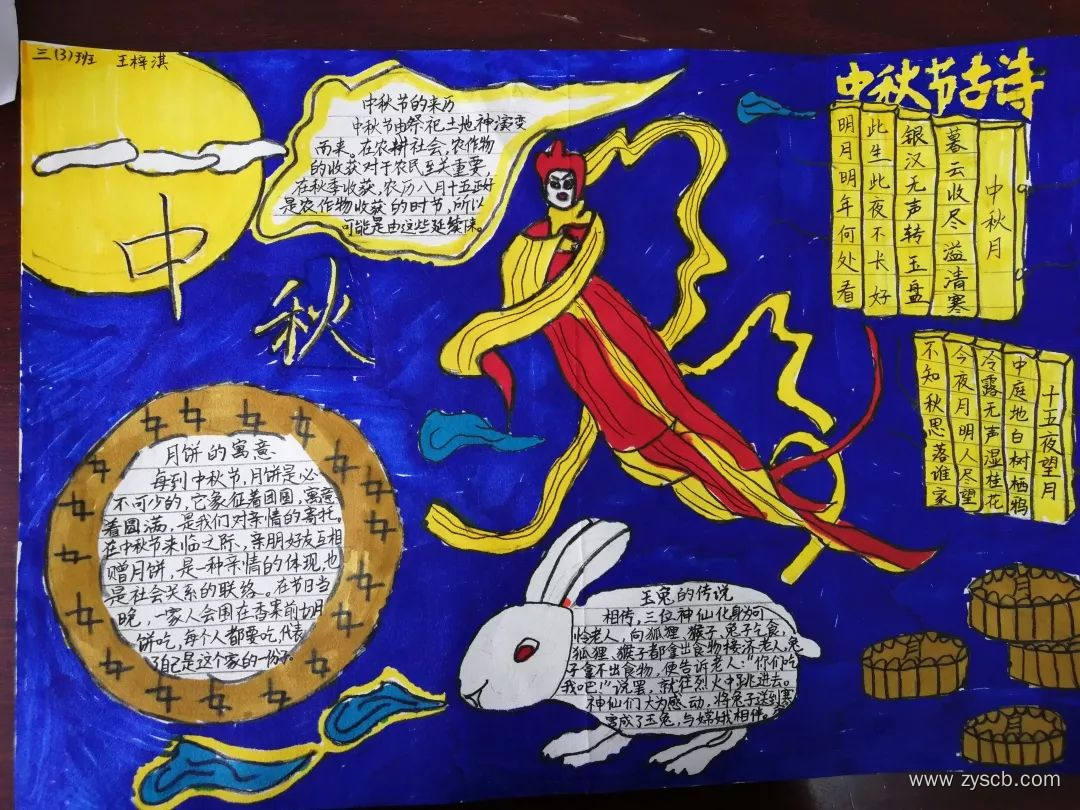 三(3)班 王梓淇
中秋
中秋节的来历
中秋节由祭祀土地神演变
而来。在农耕社会,农作物
的收获对于农民至关重要,
在秋季收获,农历八月十五正好
是农作物收获的时节,所以
可能是由这些延续来。
中秋节古诗
中秋月
暮云收尽溢清寒
银汉无声转玉盘
此生此夜不长好
明月明年何处看
十五夜望月
中庭地白树栖鸦
冷露无声湿桂花
今夜月明人尽望
不知秋思落谁家
月饼的寓意
每到中秋节,月饼是必
不可少的,它象征着团圆,寓意
着圆满,是我们对亲情的寄托。
在中秋节来临之际,亲朋好友互相
赠月饼,是一种亲情的体现,也
是社会关系的联络。在节日当
晚,一家人会围在香案前切月
饼吃,每个人都要吃,代表
了自己是这个家的一份子。
玉兔的传说
相传,三位神仙化身为可
怜老人,向狐狸、猴子、兔子乞食,
狐狸、猴子都拿出食物接济老人,兔
子拿不出食物,便告诉老人:“你们吃
我吧!”说罢,就往烈火中跳进去。
神仙们大为感动,将兔子送到广寒
宫成了玉兔,与嫦娥相伴。
www.zyscb.com